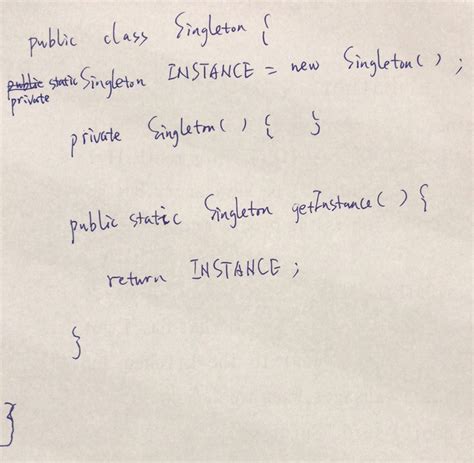 public class Singleton {
public static Singleton INSTANCE = new Singleton();
private
private Singleton() { }
public static Singleton getInstance() {
return INSTANCE;
}
}